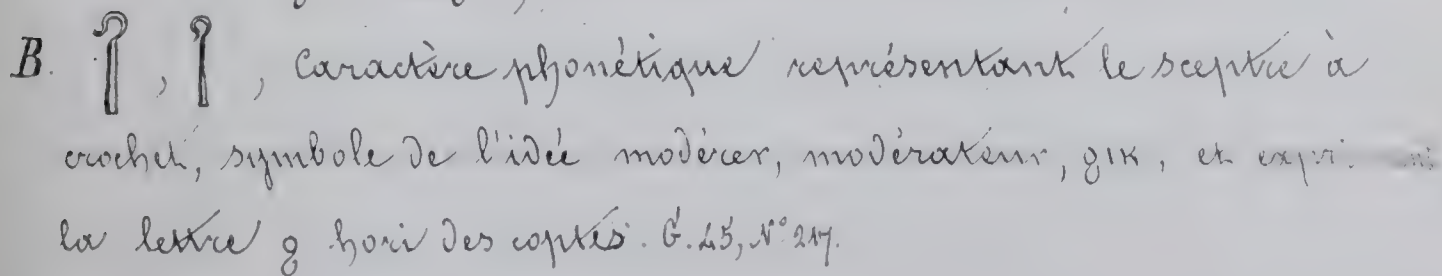 B. 𓋾, 𓋾, Caractère phonétique représentant le sceptre à
crochet, symbole de l'idée modérer, modérateur, ϩⲓⲕ, et
la lettre ϩ hori des coptes. G. 45, N° 217.